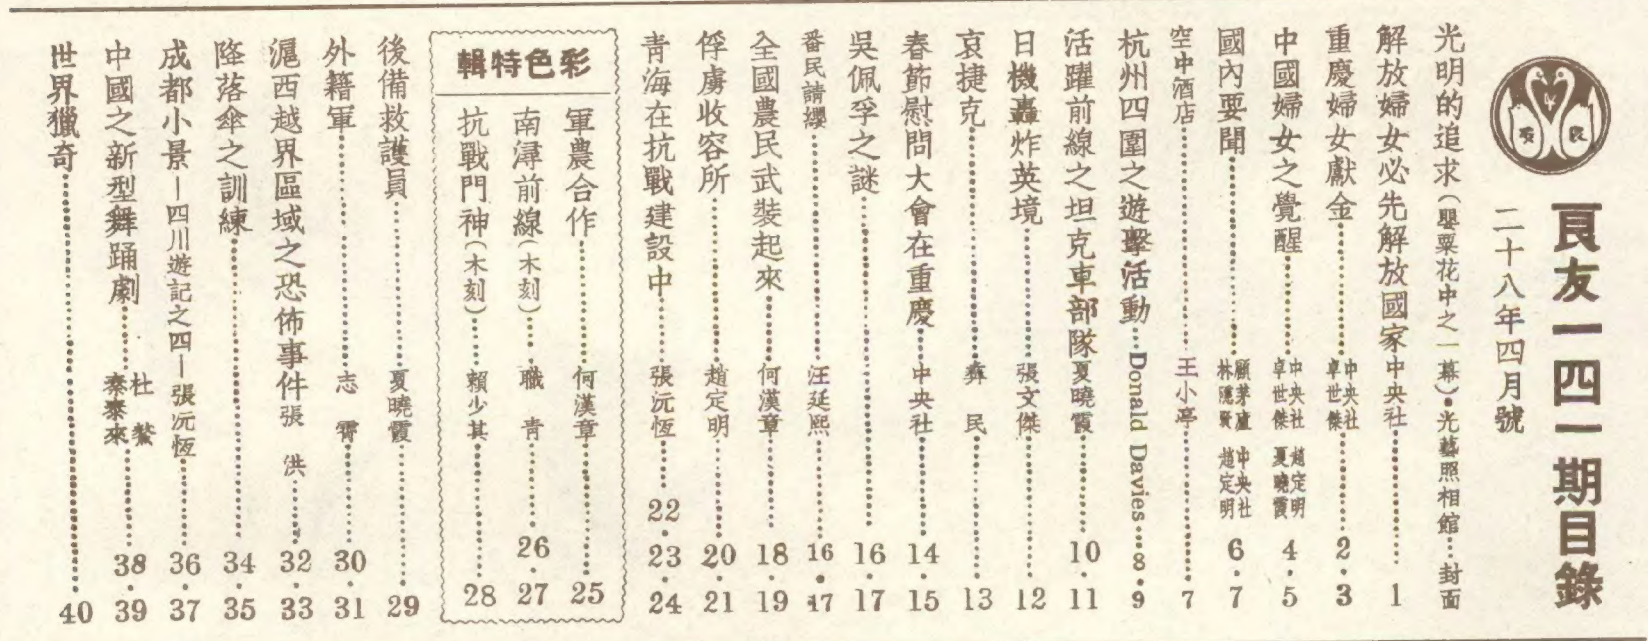 良友
良友一四一期目錄
二十八年四月號
光明的追求(罌粟花中之一幕)•光藝照相館…封面
解放婦女必先解放國家 中央社 1
重慶婦女獻金 中央社 卓世傑 2•3
中國婦女之覺醒 中央社 卓世傑 趙定明 夏曉霞 4•5
國內要聞 顧茅廬 林隱賢 中央社 趙定明 6•7
空中酒店 王小亭 7
杭州四圍之遊擊活動 Donald Davies 8•9
活躍前線之坦克車部隊 夏曉霞 10•11
日機轟炸英境 張文傑 12
哀捷克 彝民 13
春節慰問大會在重慶 中央社 14•15
吳佩孚之謎 16•17
番民請纓 汪廷熙 16•17
全國農民武裝起來 何漢章 18•19
俘虜收容所 趙定明 20•21
青海在抗戰建設中 張沅恆 22•23•24
彩色特輯
軍農合作 何漢章 25
南潯前線(木刻) 職青 26•27
抗戰門神(木刻) 賴少其 28
後備救護員 夏曉霞 29
外籍軍 志霄 30•31
滬西越界區域之恐佈事件 張洪 32•33
降落傘之訓練 34•35
成都小景—四川遊記之四—張沅恆 36•37
中國之新型舞踊劇 杜鰲 秦泰來 38•39
世界獵奇 40